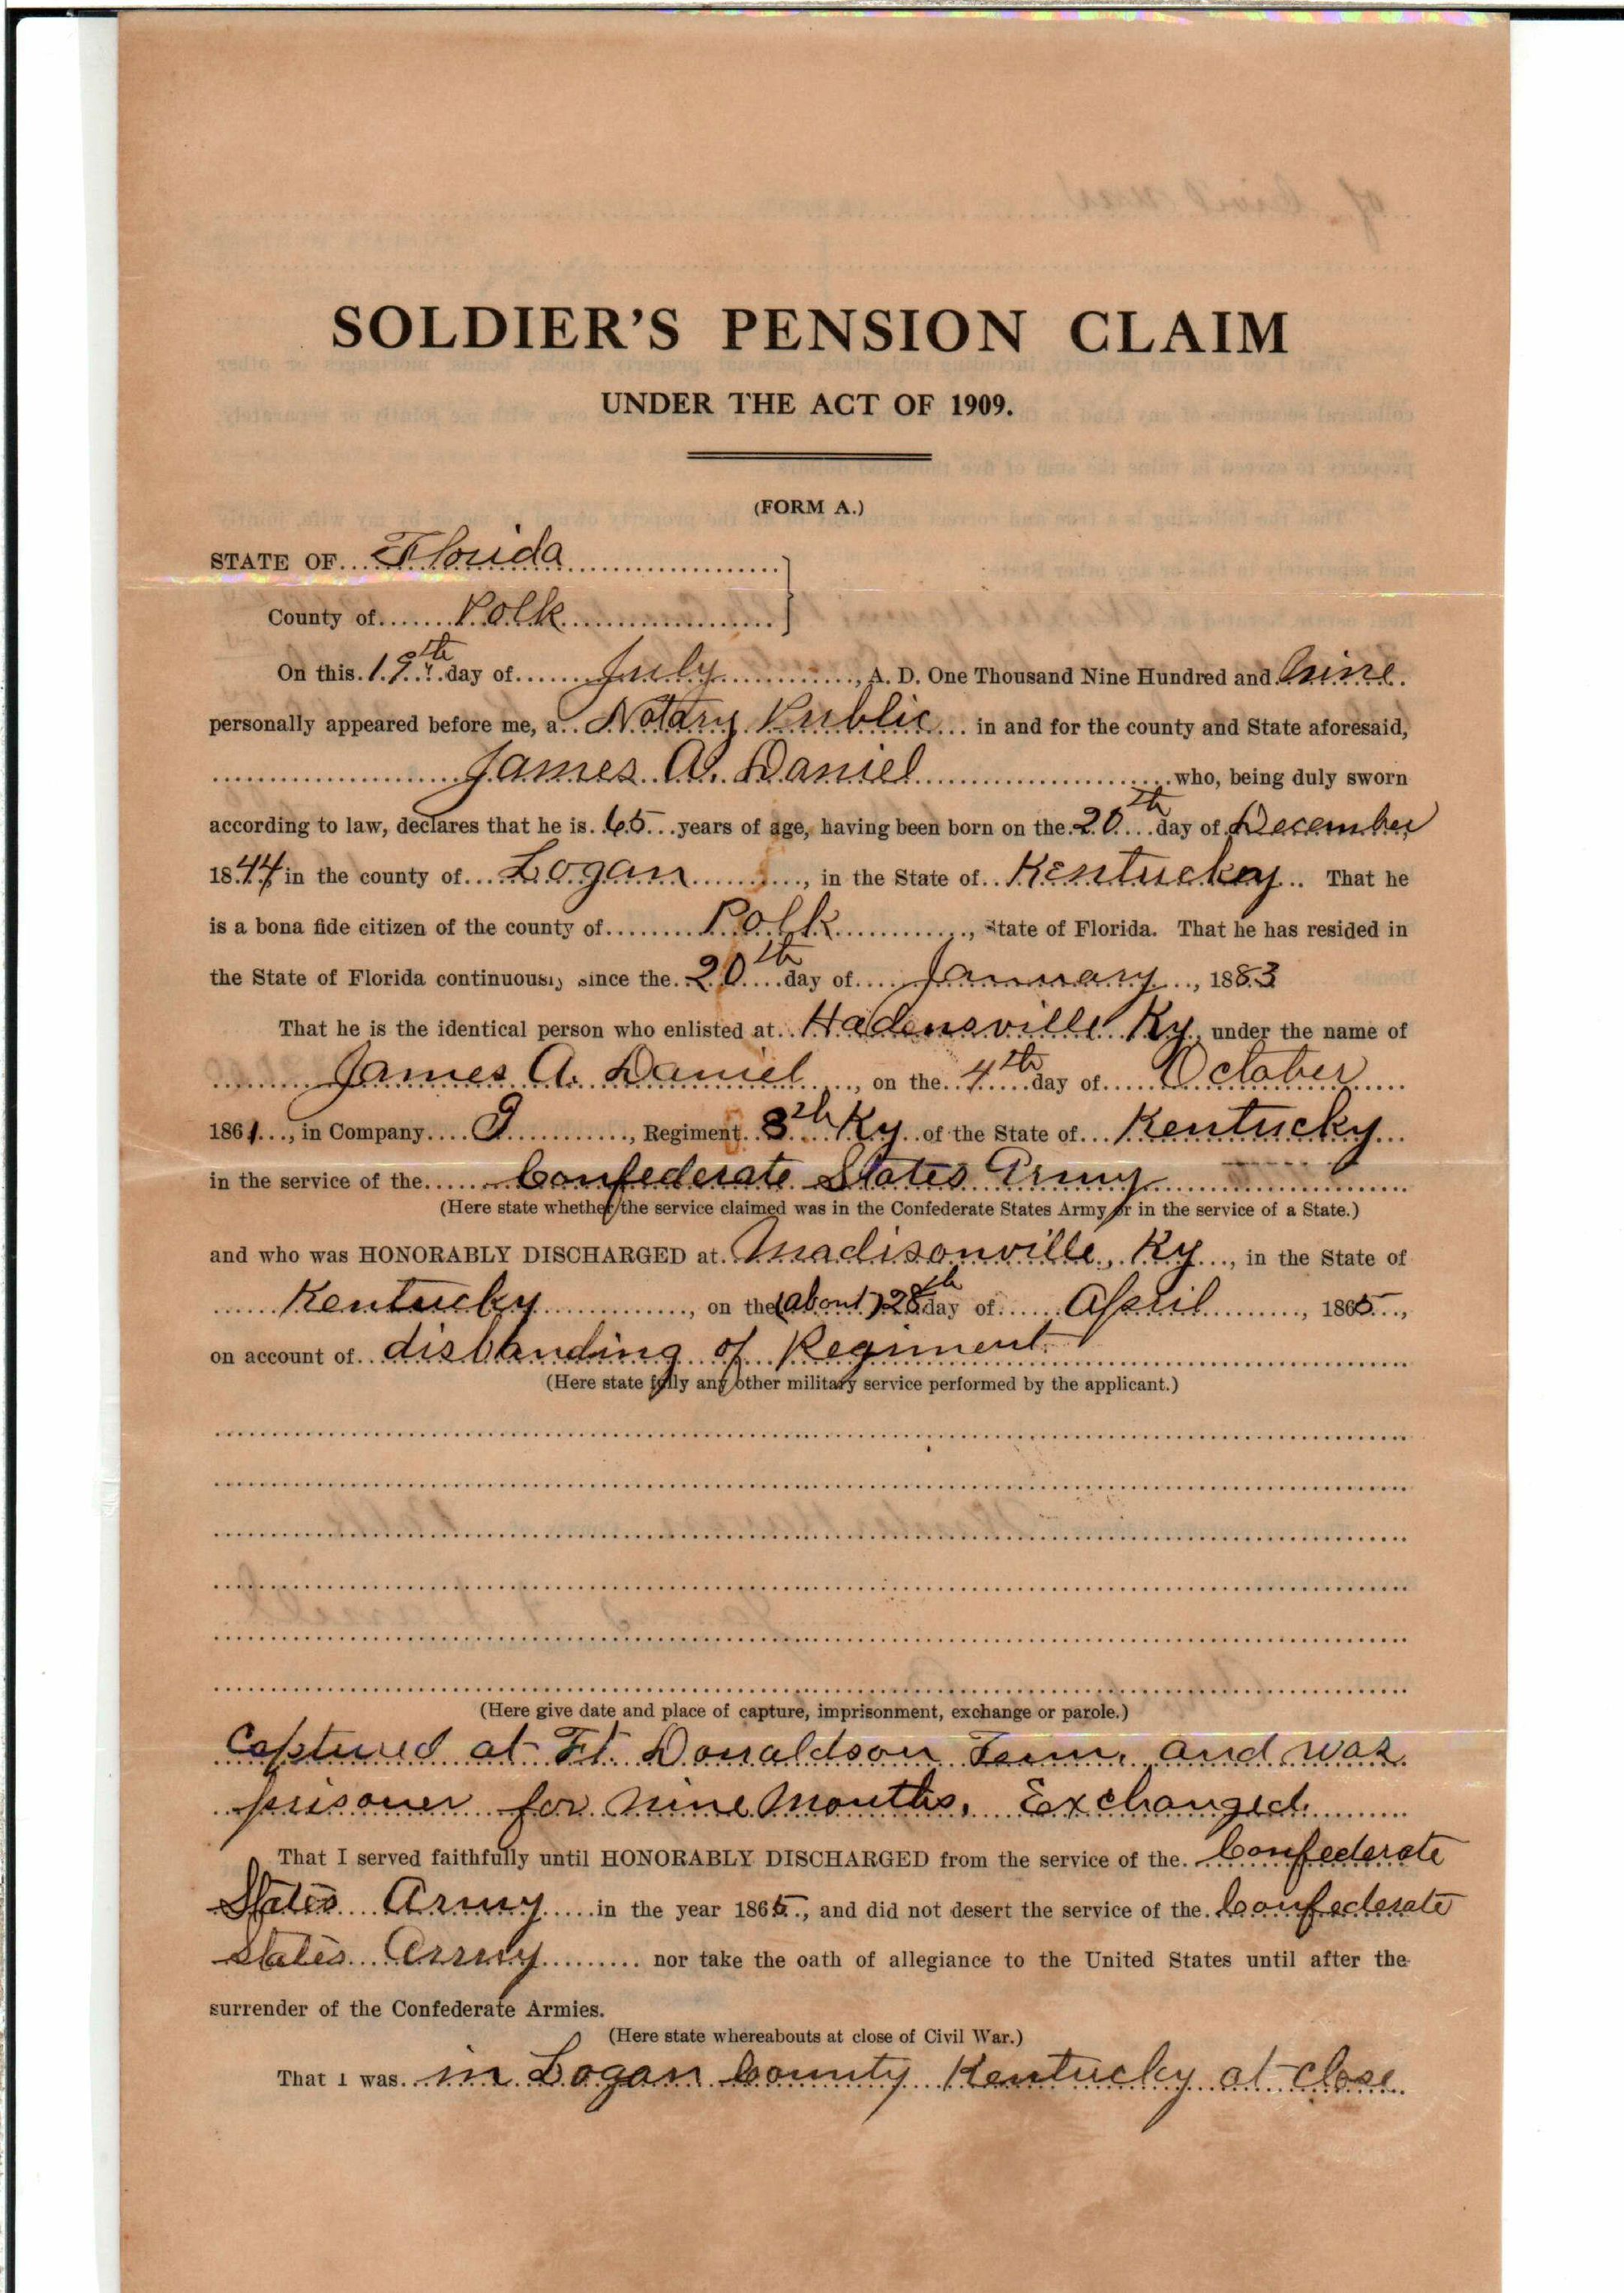 SOLDIER'S PENSION CLAIM
UNDER THE ACT OF 1909.
(FORM A.)
STATE OF Florida
County of Polk
On this 19th day of July, A. D. One Thousand Nine Hundred and Nine
personally appeared before me, a Notary Public in and for the county and State aforesaid,
James A. Daniel who, being duly sworn
according to law, declares that he is 65 years of age, having been born on the 20th day of December
1844 in the county of Logan, in the State of Kentuckey. That he
is a bona fide citizen of the county of Polk, State of Florida. That he has resided in
the State of Florida continuously since the 20th day of January, 1883
That he is the identical person who enlisted at Hadensville Ky, under the name of
James A. Daniel, on the 4th day of October
1861, in Company, Regiment 8th Ky of the State of Kentucky
in the service of the Confederate States Army
(Here state whether the service claimed was in the Confederate States Army or in the service of a State.)
and who was HONORABLY DISCHARGED at Madisonville, Ky, in the State of
Kentucky, on the (about) 28th day of April, 1865,
on account of disbanding of Regiment.
(Here state fully any other military service performed by the applicant.)
(Here give date and place of capture, imprisonment, exchange or parole.)
Captured at Ft. Donaldson Tenn. and was
prisoner for nine months. Exchanged.
That I served faithfully until HONORABLY DISCHARGED from the service of the Confederate
States Army in the year 1865, and did not desert the service of the Confederate
States Army nor take the oath of allegiance to the United States until after the
surrender of the Confederate Armies.
(Here state whereabouts at close of Civil War.)
That I was in Logan County Kentucky at close